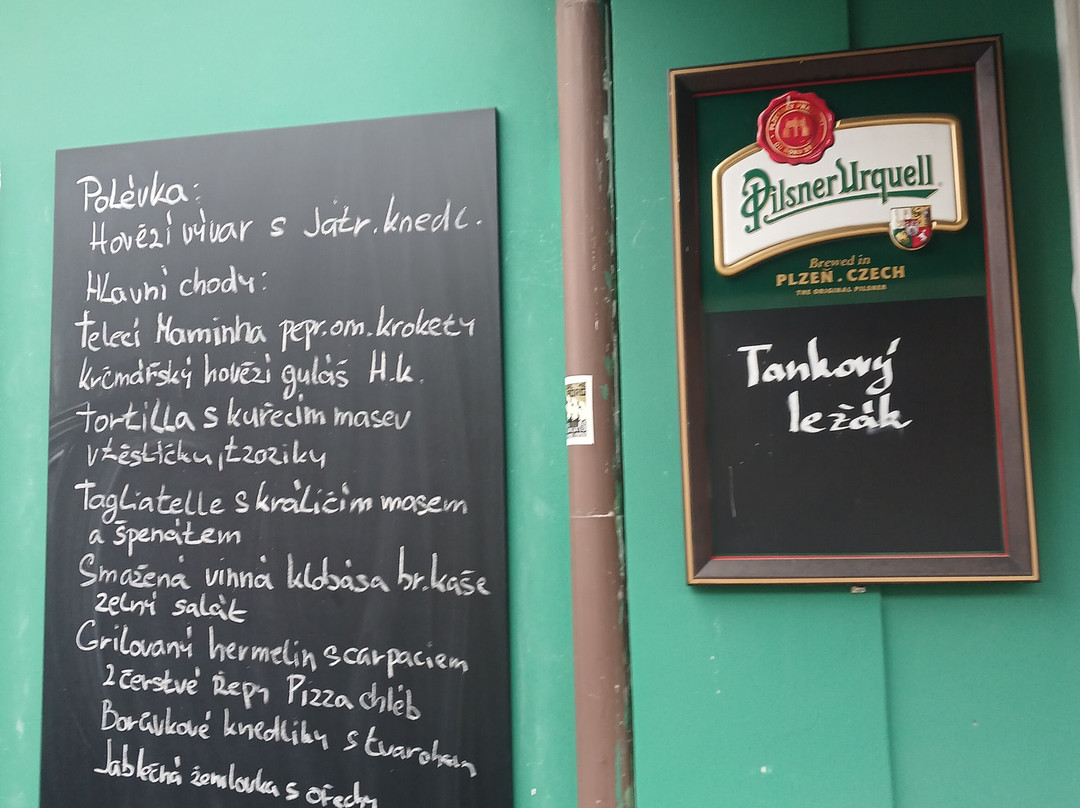 Polévka:
Hovězí vývar s játr. knedl.
Hlavní chody:
telecí Maminha pepr. om. krokety
krčmářský hovězí guláš H.k.
tortilla s kuřecím masev
v těstíčku, tzoziky
Tagliatelle s králičím masem
a špenátem
Smažená vinná klobása br. kaše
zelný salát
Grilovaný hermelin s carpaciem
z čerstvé řepy Pizza chléb
Borůvkové knedlíky s tvarohem
Jablečná žemlovka s ořechy
Pilsner Urquell
Brewed in
PLZEŇ. CZECH
THE ORIGINAL PILSNER
Tankový
ležák